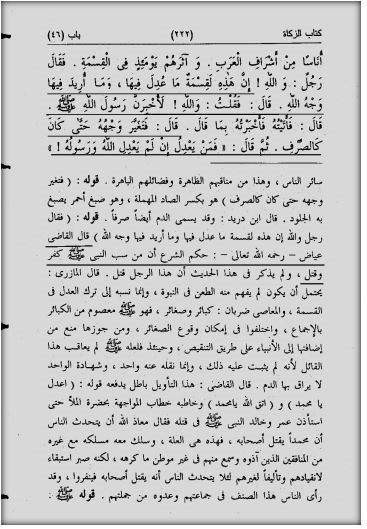 كتاب الزكاة (٢٢٢) باب (٤٦)
أُنَاسًا مِنْ أَشْرَافِ الْعَرَبِ . وَ آثَرَهُمْ يَوْمَئِذٍ فِى الْقِسْمَةِ . فَقَالَ
رَجُلٌ : وَ اللهِ ! إِنَّ هَذِهِ لَقِسْمَةٌ مَا عُدِلَ فِيهَا ، وَمَا أُرِيدَ فِيهَا
وَجْهُ اللهِ . قَالَ : فَقُلْتُ : وَاللهِ ! لَأُخْبِرَنَّ رَسُولَ اللهِ ﷺ .
قَالَ : فَأَتَيْتُهُ فَأَخْبَرْتُهُ بِمَا قَالَ . قَالَ : فَتَغَيَّرَ وَجْهُهُ حَتَّى كَانَ
كَالصِّرْفِ . ثُمَّ قَالَ : « فَمَنْ يَعْدِلُ إِنْ لَمْ يَعْدِلِ اللهُ وَرَسُولُهُ ! »
سائر الناس ، وهذا من مناقبهم الظاهرة وفضائلهم الباهرة . قوله : ( فتغير
وجهه حتى كان كالصرف ) هو بكسر الصاد المهملة ، وهو صبغ أحمر يصبغ
به الجلود . قال ابن دريد : وقد يسمى الدم أيضاً صرفاً . قوله : ( فقال
رجل والله إن هذه لقسمة ما عدل فيها وما أريد فيها وجه الله ) قال القاضى
عياض – رحمه الله تعالى – : حكم الشرع أن من سب النبى ﷺ كفر
وقتل ، ولم يذكر فى هذا الحديث أن هذا الرجل قتل . قال المازرى :
يحتمل أن يكون لم يفهم منه الطعن فى النبوة ، وإنما نسبه إلى ترك العدل فى
القسمة ، والمعاصى ضربان : كبائر وصغائر ، فهو ﷺ معصوم من الكبائر
بالإجماع ، واختلفوا فى إمكان وقوع الصغائر ، ومن جوزها منع من
إضافتها إلى الأنبياء على طريق التنقيص ، وحينئذ فلعله ﷺ لم يعاقب هذا
القائل لأنه لم يثبت عليه ذلك ، وإنما نقله عنه واحد ، وشهادة الواحد
لا يراق بها الدم . قال القاضى : هذا التأويل باطل يدفعه قوله : ( اعدل
يا محمد ) و ( اتق الله يامحمد ) وخاطبه خطاب المواجهة بحضرة الملأ حتى
استأذن عمر وخالد النبى ﷺ فى قتله فقال معاذ الله أن يتحدث الناس
أن محمداً يقتل أصحابه ، فهذه هى العلة ، وسلك معه مسلكه مع غيره
من المنافقين الذين آذوه وسمع منهم فى غير موطن ما كرهه ، لكنه صبر استبقاء
لانقيادهم وتأليفاً لغيرهم لئلا يتحدث الناس أنه يقتل أصحابه فينفروا ، وقد
رأى الناس هذا الصنف فى جماعتهم وعدوه من جملتهم . قوله ﷺ :